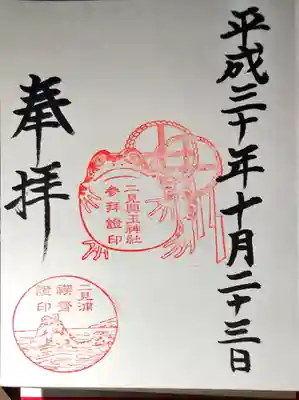 平成三十年十月二十三日
二見興玉神社
參拜證印
奉拝
二見浦
禊齋
證印